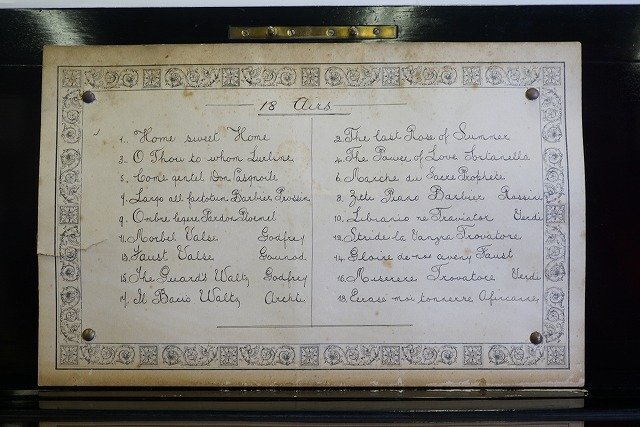 18 Airs
1. Home sweet Home
2. The last Rose of Summer
3. O Thou to whom Lurline
4. The Power of Love Satanella
5. Come gentel Don Pasquale
6. Marche du Sacre Prophete
7. Largo all factotum Barbier Rossini
8. Zitti Piano Barbier Rossini
9. Ombre legere Pardon Ploermel
10. Libiamo ne Traviator Verdi
11. Valse Godfrey
12. Stride la Vampa Trovatore
13. Faust Valse Gounod
14. Gloire de nos aveux Faust
15. The Guard's Waltz Godfrey
16. Miserere Trovatore Verdi
17. Il Bacio Waltz Arditi
18. moi tonnerre Africaine